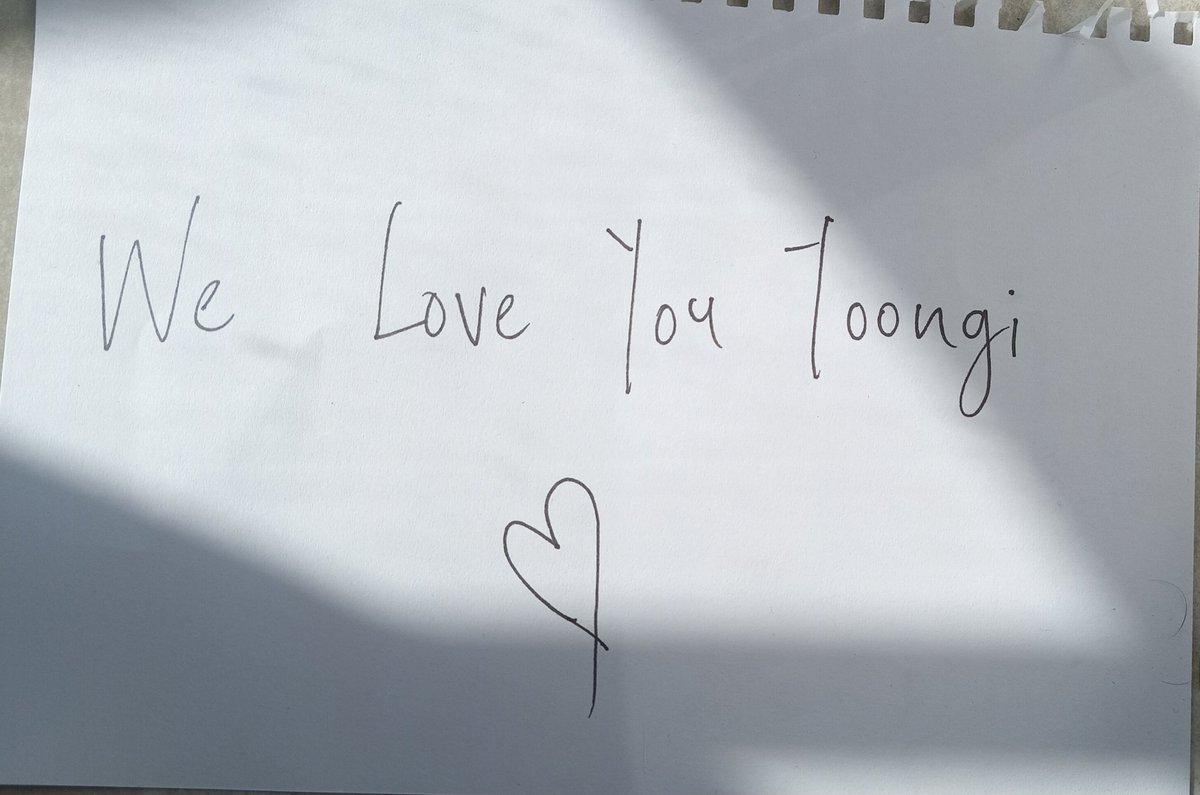 We Love You Yoongi